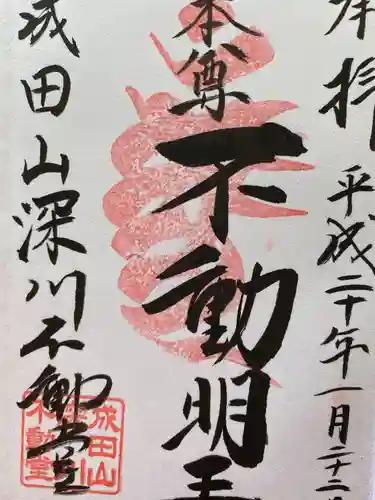 奉拝
平成二十年一月二十二
本尊
不動明王
成田山深川不動堂
成田山
深川
不動堂